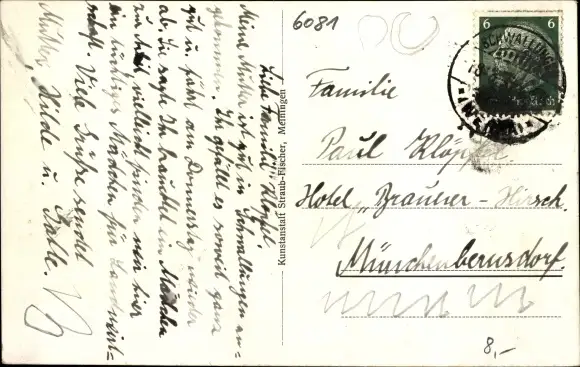 Liebe Familie Klöpfel.
Meine Mutter ist gut in Schwallungen an-
gekommen. Ihr gefällt es soweit ganz
gut u. fährt am Donnerstag wieder
ab. Sie sagte Ihr braucht ein Mädchen
zur Arbeit vielleicht finden wir hier
ein tüchtiges Mädchen für Landwirt-
schaft. Viele Grüße sendet
Mutter, Hilde u.
Kunstanstalt Straub-Fischer, Meiningen
6081
6
6
SCHWALLUNGEN
Familie
Paul Klöpfel
Hotel „Brauner-Hirsch.
Münchenbernsdorf.
8,-